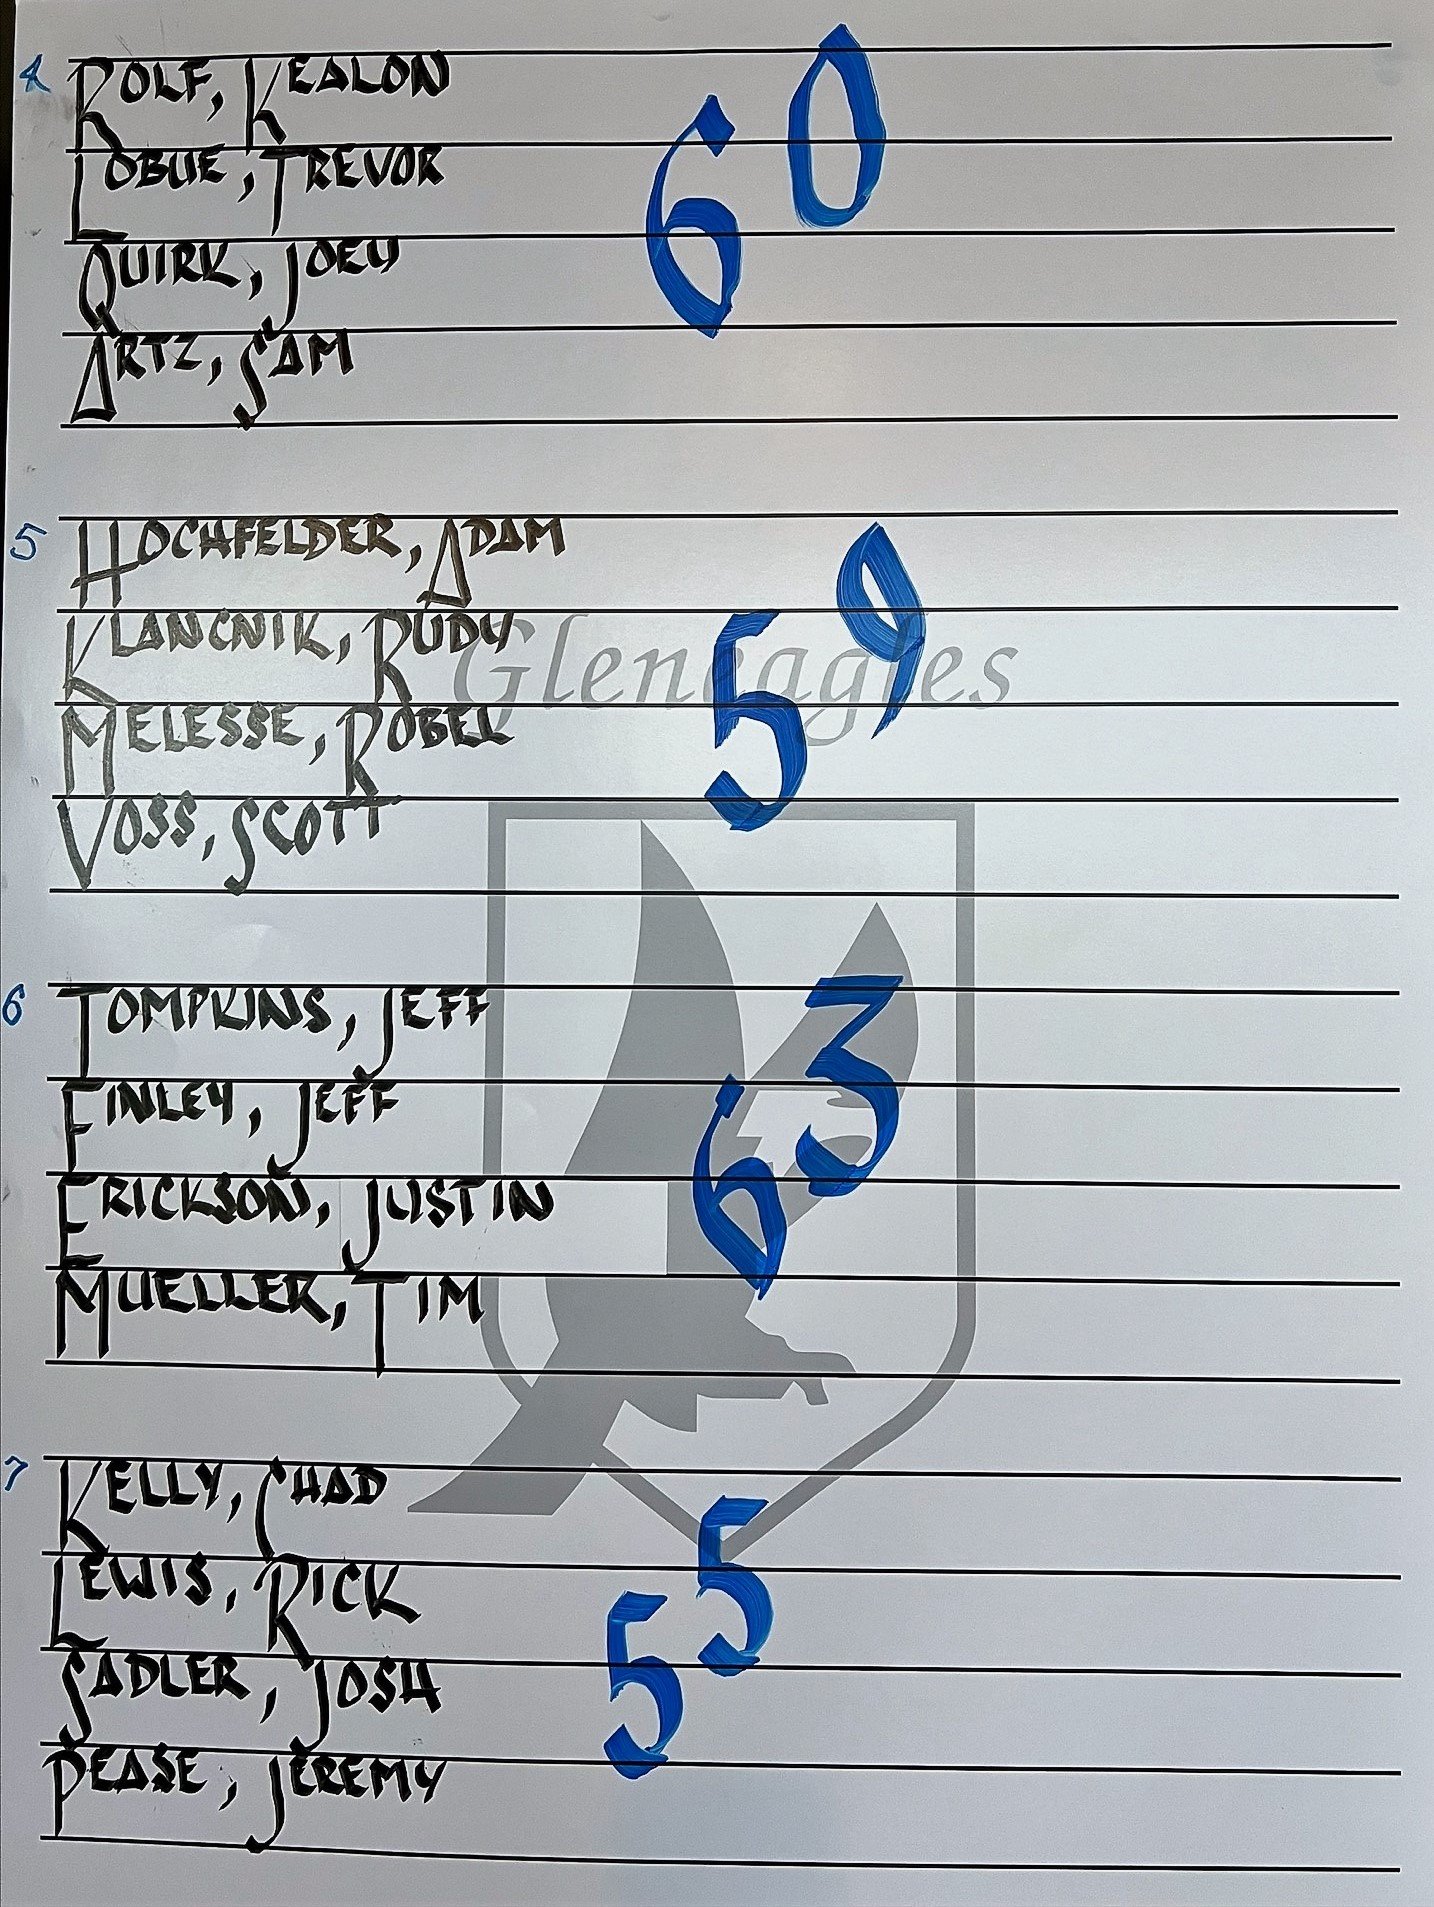 4
ROLF, KEALON
LOBUE, TREVOR
QUIRK, JOEY
ARTZ, SAM
60
5
HOCHFELDER, ADAM
KLANCNIK, RUDY
MELESSE, ROBEL
VOSS, SCOTT
59
Gleneagles
6
TOMPKINS, JEFF
FINLEY, JEFF
ERICKSON, JUSTIN
MUELLER, TIM
63
7
KELLY, CHAD
LEWIS, RICK
SADLER, JOSH
PEASE, JEREMY
55